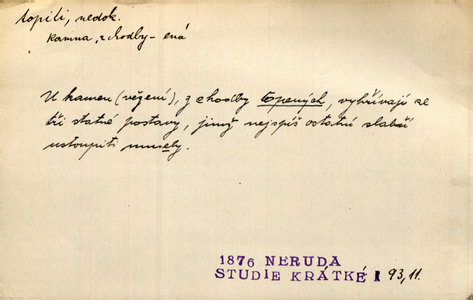 topiti, nedok.
kamna, z chodby - ená
U kamen (vězení), z chodby topených, vyhřívají se
tři statné postavy, jimž nejspíš ostatní slabší
ustoupiti musely.
1876 NERUDA
STUDIE KRÁTKÉ I 93,11.